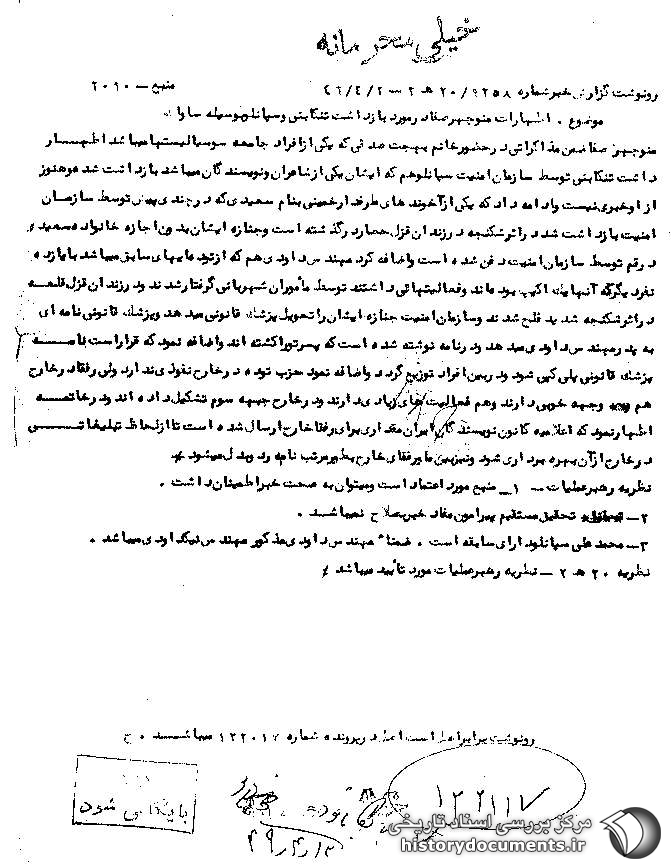 خیلی محرمانه
رونوشت گزارش خبر شماره ۹۲۵۸/ ۲۰ هـ ۲ – ۴۹/۴/۲ منبع – ۲۰۹۰
موضوع . اظهارات منوچهر صفا در مورد بازداشت تنکابنی و سپانلو بوسیله ساواک
منوچهر صفا ضمن مذاکراتی در حضور خانم بهجت صدقی که یکی از افراد جامعه سوسیالیستها میباشد اظهار
داشت تنکابنی توسط سازمان امنیت سپانلو هم که ایشان یکی از شاعران و نویسندگان میباشد بازداشت شد و هنوز
از او خبری نیست و ادامه داد که یکی از آخوند های طرفدار خمینی بنام سعیدی که در چندی پیش توسط سازمان
امنیت بازداشت شد در اثر شکنجه در زندان قزل حصار درگذشته است و جنازه ایشان بدون اجازه خانواده سعیدی
در قم توسط سازمان امنیت دفن شده است و اضافه کرد مهندس داودی هم که از توده ایهای سابق میباشد با یازده
نفر دیگر که آنها یک اکیپ بوده اند و فعالیتهائی داشتند توسط مأموران شهربانی گرفتار شدند و در زندان قزل قلعه
در اثر شکنجه شدید فلج شدند و سازمان امنیت جنازه ایشان را تحویل پزشک قانونی میدهد و پزشک قانونی نامه ای
به پدر مهندس داودی میدهد و در نامه نوشته شده است که پسر تو را کشته اند و اضافه نمود که قرار است نامه
پزشک قانونی پلی کپی شود و در بین افراد توزیع گردد و اضافه نمود حزب توده در خارج نفوذی ندارد ولی رفقا در خارج
هم وجهه خوبی دارند و هم فعالیت های زیادی دارند و در خارج جبهه سوم تشکیل داده اند و در خاتمه
اظهار نمود که اعلامیه کانون نویسندگان ایران مقداری برای رفقا خارج ارسال شده است تا از لحاظ تبلیغاتی
در خارج از آن بهره برداری شود و نیز بین ما و رفقای خارج بطور مرتب نامه رد و بدل میشود
نظریه رهبر عملیات – ۱– منبع مورد اعتماد است و میتوان به صحت خبر اطمینان داشت .
۲– تحقیق مستقیم پیرامون مفاد خبر بصلاح نمیباشد .
۳– محمد علی سپانلو دارای سابقه است . ضمناً مهندس داودی مذکور مهندس نیکداودی میباشد .
نظریه ۲۰ هـ ۲ – نظریه رهبر عملیات مورد تأیید میباشد
رونوشت برابر اصل است اصل در پرونده شماره ۱۲۲۰۱۷ میباشد . ح
۱۲۲۱۱۷
بایگانی شود
۴۹/۴/۱۳
مرکز بررسی اسناد تاریخی
historydocuments.ir